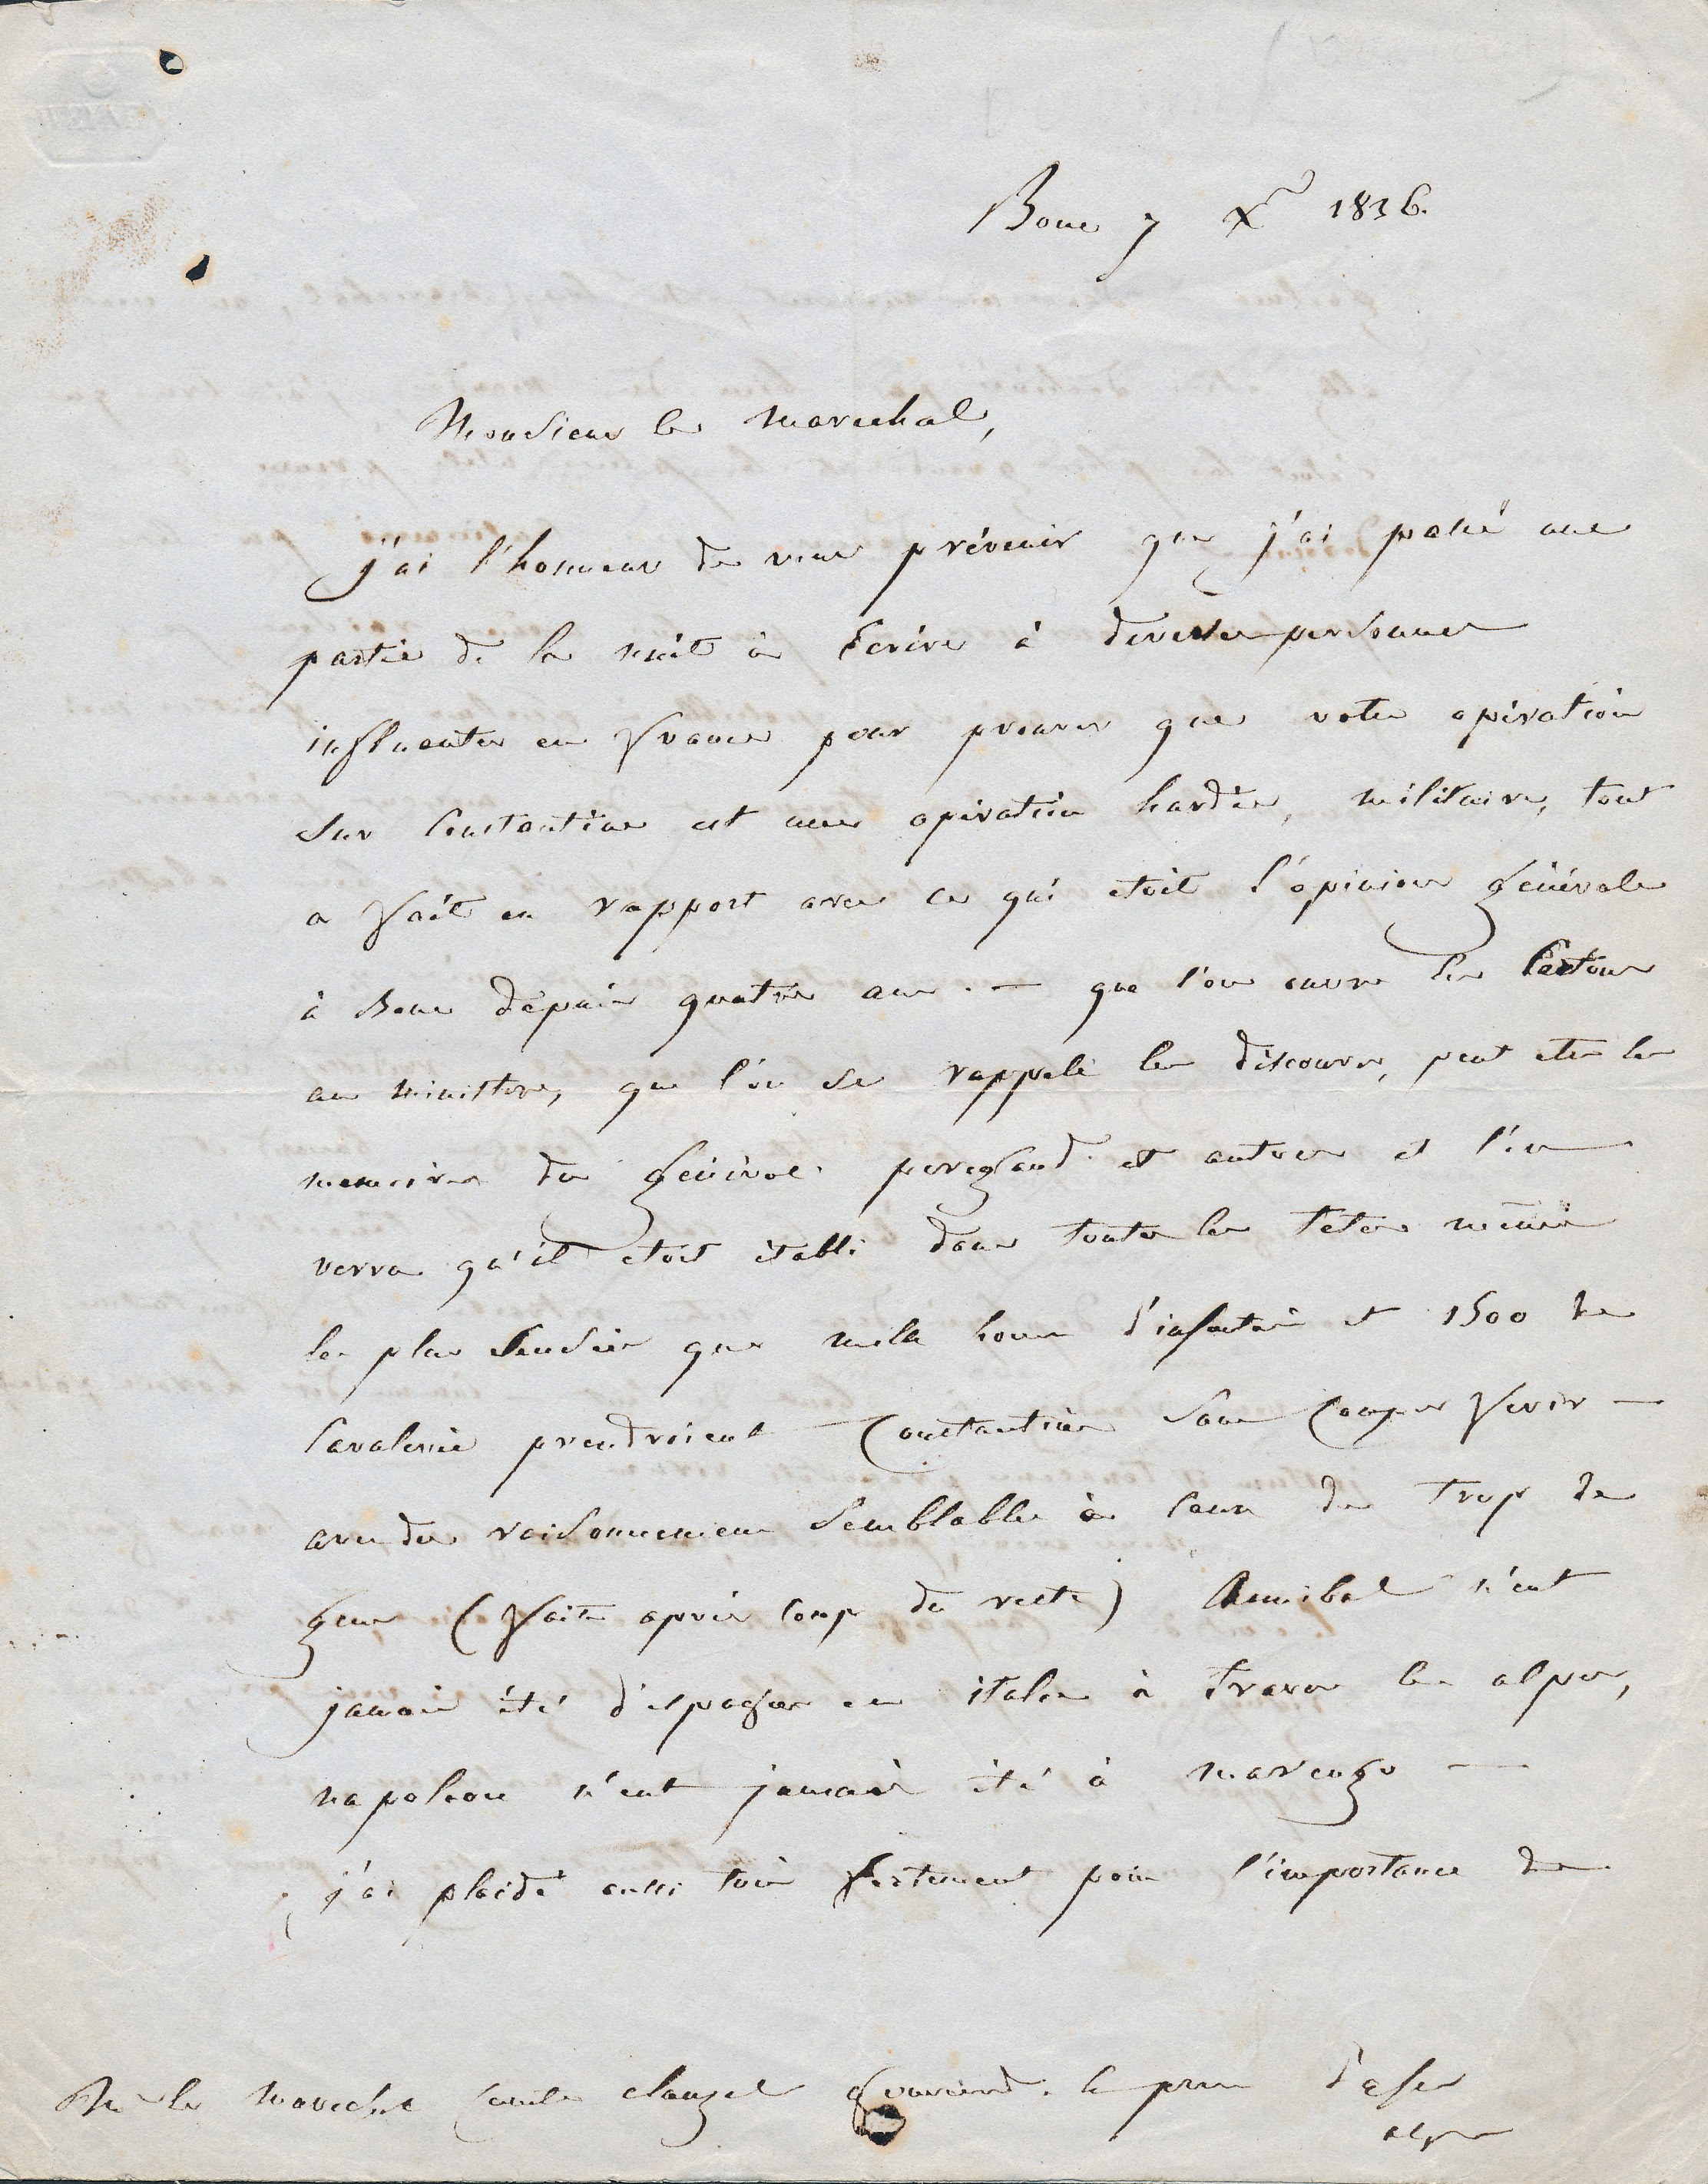 Bone 7 Xre 1836.
Monsieur le Marechal,
j'ai l'honneur de vous prévenir que j'ai passé une
partie de la nuit à Ecrire à diverses personnes
influentes en france pour prouver que votre opération
sur Constantine est une opération hardie, militaire, tout
a fait en rapport avec ce qui etoit l'opinion générale
à Bone depuis quatre ans. — que l'on ouvre les Cartons
au ministere, que l'on se rappele les discours, peut etre les
memoires du général
et autres et l'on
verra qu'il etoit établi dans toutes les tetes même
les plus Sensées que mille homes d'infanterie et 1500 de
Cavalerie prendroient Constantine Sans Coup Ferir —
avec des raisonnemens Semblables à ceux de trop de
gens (faits après Coup du reste) Annibal n'eut
jamais été d'espagne en italie à travers les alpes,
napoleon n'eut jamais été à marengo —
j'ai plaidé aussi très fortement pour l'importance de
Mr le Marechal Comte clauzel gouverneur
d'afrique
alger